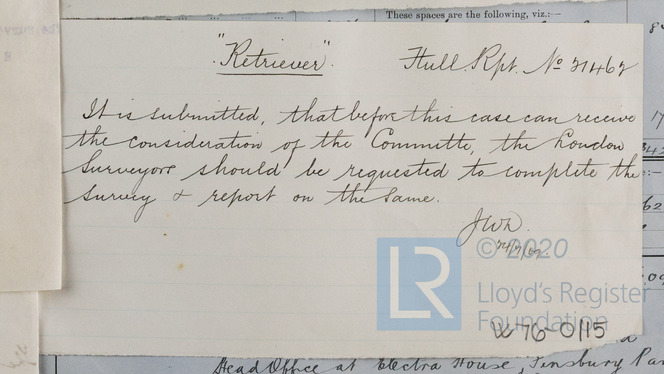 These spaces are the following, viz.:—
"Retriever".
Hull. Rpt. No 21462
It is submitted, that before this case can receive
the consideration of the Committe, the London
Surveyors should be requested to complete the
survey & report on the same.
LR
© 2020
Lloyd's Register
Foundation
W76-0115
Head Office at Electra House, Finsbury